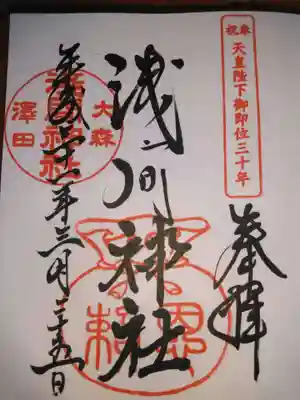 奉祝 天皇陛下御即位三十年
奉拝
浅間神社
平成三十一年三月二十五日
大森
澤田